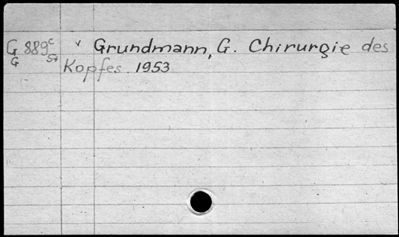 G 889c v Grundmann, G. Chirurgie des
G St Kopfes. 1953